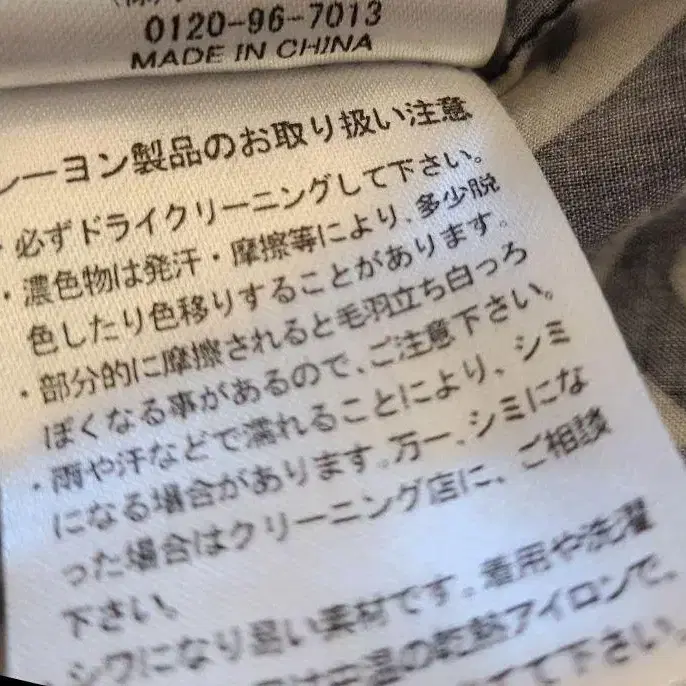 0120-96-7013
MADE IN CHINA
レーヨン製品のお取り扱い注意
・必ずドライクリーニングして下さい。
・濃色物は発汗・摩擦等により、多少脱
色したり色移りすることがあります。
・部分的に摩擦されると毛羽立ち白っろ
ぽくなる事があるので、ご注意下さい。
・雨や汗などで濡れることにより、シミ
になる場合があります。万一、シミにな
った場合はクリーニング店に、ご相談
下さい。
・シワになり易い素材です。着用や洗濯
は中温の乾熱アイロンで、
て下さい。